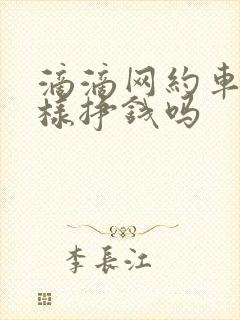 滴滴网約車
様挣錢吗
李長江